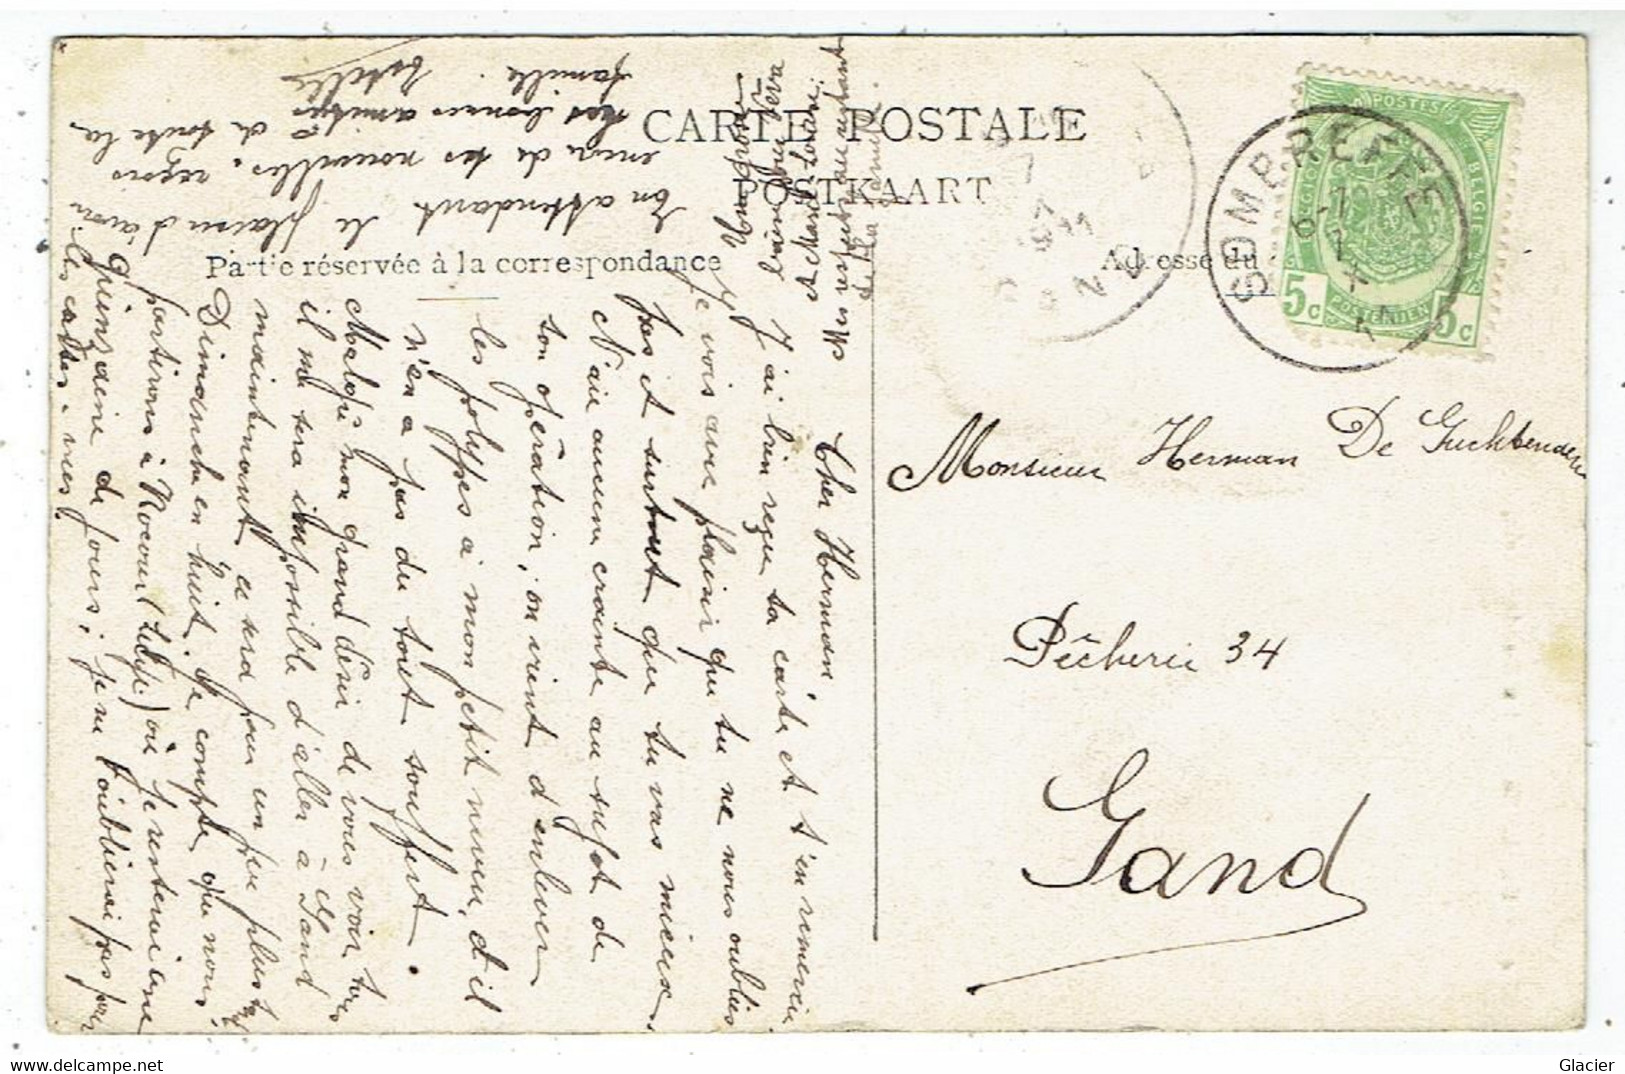 CARTE POSTALE
POSTKAART
Partie réservée à la correspondance
Adresse du
SOMBREFFE
POSTES
BELGIE
POSTERIJEN
5c 5c
GAND
Monsieur Herman De Guchtenaere
Pêcherie 34
Gand
Cher Herman,
J'ai bien reçu ta carte et t'en remercie
Je vois avec plaisir que tu ne nous oublies
pas et surtout que tu vas mieux.
N'aie aucun crainte au sujet de
ton opération, on vient d'enlever
les polypes à mon petit neveu, et il
n'en a pas du tout souffert.
Malgré mon grand désir de vous voir tous
il me sera impossible d'aller à Gand
maintenant ce sera pour un peu plus tard
Dimanche en huit. Je compte que nous
partirons à Rocour où je resterai une
quinzaine de jours, je ne t'oublierai pas pour
les cartes-vues.
En attendant le plaisir d'avoir
de tes nouvelles, reçois
mes bonnes amitiés de toute la
famille.
Estelle
Glacier